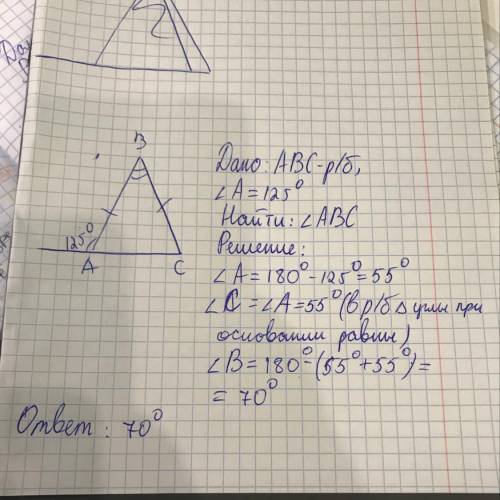 B
125°
A
C
Дано: ABC-р/б,
∠A=125°
Найти: ∠ABC
Решение:
∠A=180°-125°=55°
∠C=∠A=55° (в р/б △ углы при
основании равны)
∠B=180°-(55°+55°)=
=70°
Ответ: 70°